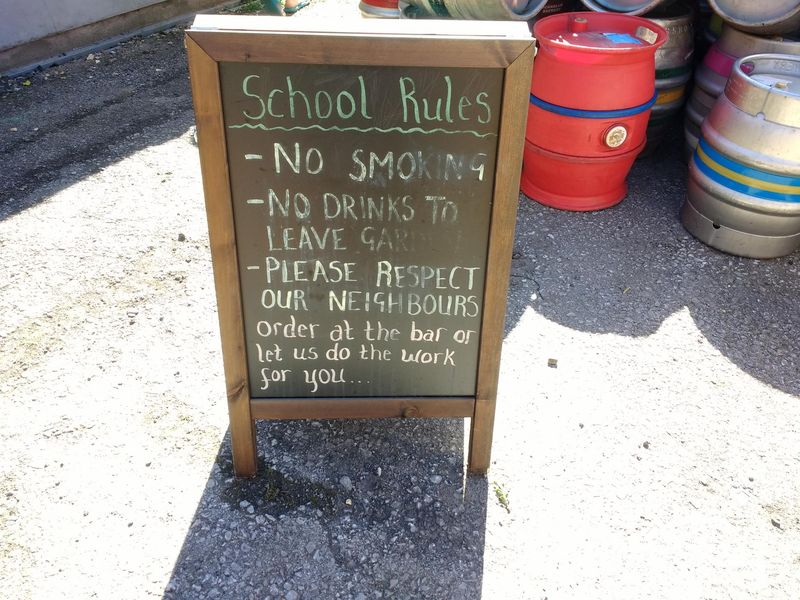 School Rules
- NO SMOKING
- NO DRINKS TO
LEAVE GARDEN
- PLEASE RESPECT
OUR NEIGHBOURS
order at the bar or
let us do the work
for you...